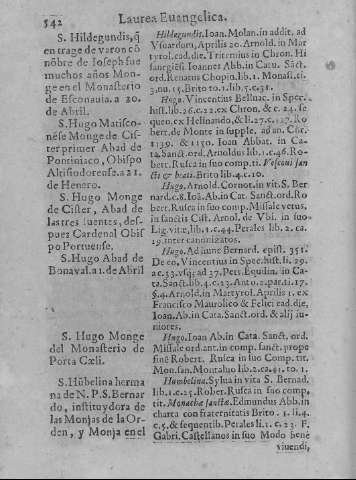 542
Laurea Euangelica.
S. Hildegundis, q̃
en trage de varon cõ
nõbre de Ioseph fue
muchos años Mon-
ge en el Monasterio
de Esconauia. a 20.
de Abril.
S. Hugo Matisco-
nése Monge de Cis-
ter primer Abad de
Pontiniaco, Obispo
Altisiodorense. a 21.
de Henero.
S. Hugo Monge
de Cister, Abad de
las tres fuentes, des-
pues Cardenal Obis
po Portuense.
S. Hugo Abad de
Bonaval. a 1. de Abril
S. Hugo Monge
del Monasterio de
Porta Cœli.
S. Hũbelina herma
na de N. P. S. Bernar
do, instituydora de
las Monjas de la Or-
den, y Monja en el
Hildegundis. Ioan. Molan. in addit. ad
Vsuardum, Aprilis 20. Arnold. in Mar
tyrol. ead. die. Tritemius in Chron. Hi
saugiẽs. Ioannes Abb. in Catu. Sãct.
ord. Renatus Chopin. lib. 1. Monast. ti.
3. nu. 15. Brito to. 1. lib. 5. c. 31.
Hugo. Vincentius Belluac. in Spec.
hist. lib. 26. c. 22. ex Chron. & c. 24. se
queo. ex Helinando, & li. 27. c. 127. Ro
bert. de Monte in supple. ad an. Chr.
1139. & 1150. Ioan Abbat. in Ca-
ta. sanct. ord. Arnoldus lib. 1. c. 46. Ro-
bert. Rusca in suo comp. ti. Vescoui san
cti & beati. Brito lib. 4. c. 10.
Hugo. Arnold. Cornot. in vit. S. Ber
nard. c. 8. Ioã. Ab. in Cat. Sanct. ord. Ro
bert. Rusca in suo comp. Missale vetus,
in sanctis Cist. Arnol. de Vbi. in suo
Lig. vitæ, lib. 1. c. 44. Perales lib. 2. ca.
19. inter canonizatos.
Hugo. Ad iunc Bernard. epist. 351.
De eo, Vincentius in Spec. hist. li. 29.
ac. 53. vsq; ad 37. Petr. Equilin. in Ca-
ta. Sanct. lib. 4. c. 23. Anto. 2. par. ti. 17.
§. 4. Arnold. in Martyrol. Aprilis 1. ex
Francisco Maurolico & Felici ead. die,
Ioan. Ab. in Cata. Sanct. ord. & alij iu-
niores.
Hugo. Ioan Ab. in Cata. Sanct. ord.
Missale ord. ant. in comp. sanct. prope
finẽ Robert. Rusca in suo Comp. tit.
Mon. san. Montaluo lib. 2. ca. 41. to. 1.
Humbelina. Sylua in vita S. Bernad.
lib. 1. c. 25. Rober. Rusca in suo comp.
tit. Monachæ sanctæ. Edmundus Abb. in
charta con fraternitatis Brito. 1. li. 4.
c. 5. & sequentib. Perales li. 1. c. 23. F.
Gabri. Castellanos in suo Modo bene
viuendi,